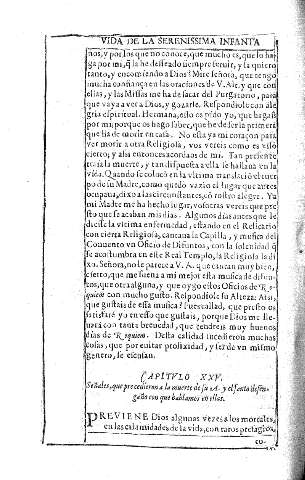 VIDA DE LA SERENISSIMA INFANTA
nos, y por los que no conoce, que mucho es, que lo ha-
ga por mi, q̃ la he desseado siempre servir, y la quiero
tanto, y encomiendo a Dios? Mire señora, que tengo
mucha confiança en las oraciones de V. Alt. y que con
ellas, y las Missas me ha de sacar del Purgatorio, para
que vaya a ver a Dios, y gozarle. Respondiole con ale-
gria espiritual. Hermana, esso os pido yo, que hagais
por mi; porque os hago saber, que he de ser la primera
que ha de morir en casa. No esta ya mi coraçon para
ver morir a otra Religiosa, vos vereis como es esso
cierto; y alla entonces acordaos de mi. Tan presente
traia la muerte, y tan dispuesta a ella se hallava en la
vida. Quando se colocò en la vltima translacion el cuer-
po de su Madre, como quedò vazio el lugar que antes
ocupava, dixo a las circunstantes, cõ rostro alegre. Ya
mi Madre me ha hecho lugar, vosotras vereis que pres-
to que se acaban mis dias. Algunos dias antes que le
diesse la vltima enfermedad, estando en el Relicario
con cierta Religiosa, cantava la Capilla, y musica del
Convento vn Oficio de Difuntos, con la solenidad q̃
se acostumbra en este Real Templo, la Religiosa la di-
xo. Señora, no le parece a V. A. que cantan muy bien,
cierto, que me suena a mi mejor esta musica de difun-
tos, que otra alguna, y que oygo estos Oficios de Re-
quiem con mucho gusto. Respondiole su Alteza: Assi,
que gustais de essa musica? Pues callad, que presto os
satisfarè yo en esso que gustais, porque Dios me lle-
varà con tanta brevedad, que tendreis muy buenos
dias de Requiem. Desta calidad sucedieron muchas
cosas, que por evitar prolixidad, y ser de vn mismo
genero, se escusan.
CAPITVLO XXV.
Señales, que precedieron a la muerte de su A. y el santo desen-
gaño con que hablamos en ellas.
PREVIENE Dios algunas vezes a los mortales,
en las calamidades de la vida, con raros presagios,
co-